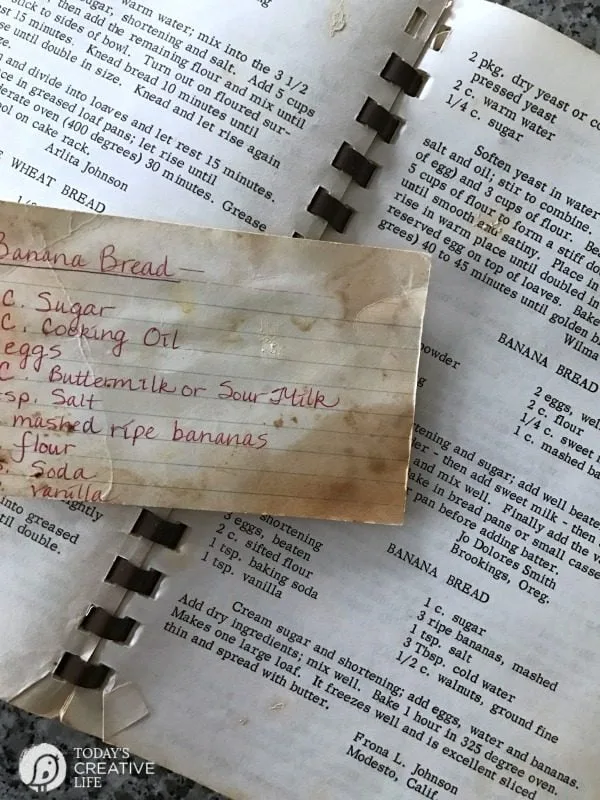 warm water; mix into the 3 1/2
sugar, shortening and salt. Add 5 cups
then add the remaining flour and mix until
stick to sides of bowl. Turn out on floured sur-
15 minutes. Knead bread 10 minutes until
until double in size. Knead and let rise again
and divide into loaves and let rest 15 minutes.
in greased loaf pans; let rise until
oven (400 degrees) 30 minutes. Grease
on cake rack.
Arlita Johnson
WHEAT BREAD
Banana Bread
C. Sugar
C. Cooking Oil
eggs
C. Buttermilk or Sour Milk
sp. Salt
mashed ripe bananas
flour
Soda
Vanilla
into greased
double.
2 pkg. dry yeast or
pressed yeast
2 c. warm water
1/4 c. sugar
Soften yeast in water
salt and oil; stir to combine.
of egg) and 3 cups of flour.
5 cups of flour to form a stiff
until smooth and satiny. Place in
rise in warm place until doubled in
reserved egg on top of loaves. Bake
grees) 40 to 45 minutes until golden
Wilma
BANANA BREAD
powder
2 eggs,
2 c. flour
1/4 c. sweet
1 c. mashed
and sugar; add well
then add sweet milk - then
and mix well. Finally add the
in bread pans or small
pan before adding batter.
Jo Dolores Smith
Brookings, Oreg.
BANANA BREAD
shortening
3 eggs, beaten
2 c. sifted flour
1 tsp. baking soda
1 tsp. vanilla
1 c. sugar
3 ripe bananas, mashed
1 tsp. salt
3 Tbsp. cold water
1/2 c. walnuts, ground fine
Cream sugar and shortening; add eggs, water and bananas.
Add dry ingredients; mix well. Bake 1 hour in 325 degree oven.
Makes one large loaf. It freezes well and is excellent sliced
thin and spread with butter.
Frona L. Johnson
Modesto, Calif.
TODAY'S
CREATIVE
LIFE